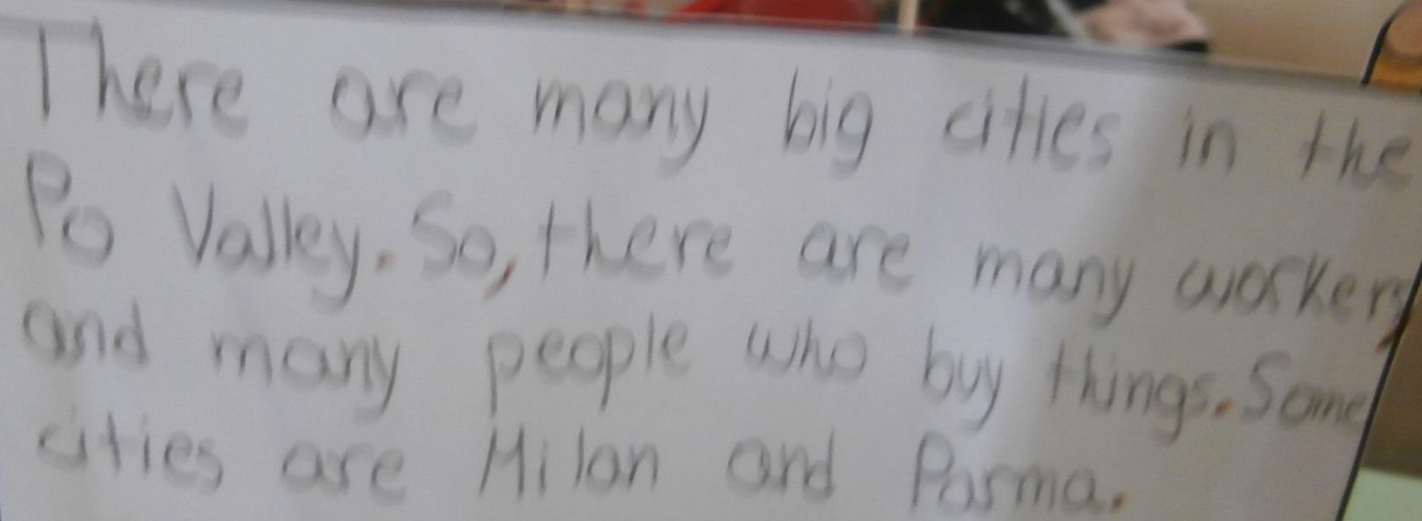 There are many big cities in the
Po Valley. So, there are many workers
and many people who buy things. Some
cities are Milan and Parma.